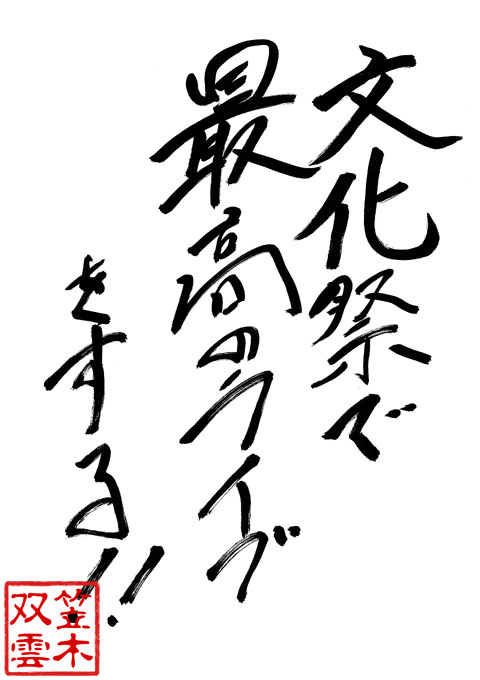 文化祭で
最高のライブ
をする!!
笠木
双雲